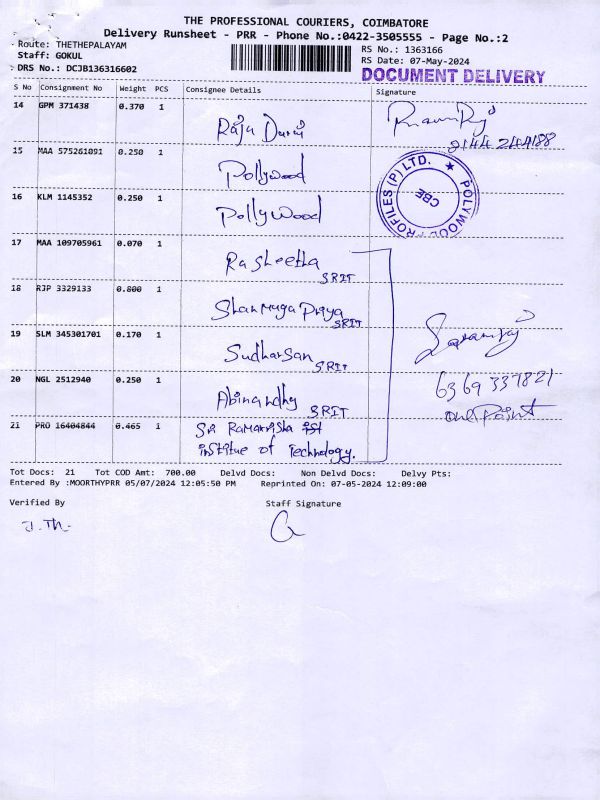 THE PROFESSIONAL COURIERS, COIMBATORE
Delivery Runsheet - PRR - Phone No.:0422-3505555 - Page No.:2
Route: THETHEPALAYAM
RS No.: 1363166
Staff: GOKUL
RS Date: 07-May-2024
DRS No.: DCJB136316602
DOCUMENT DELIVERY
S No Consignment No Weight PCS Consignee Details Signature
14 GPM 371438 0.370 1 Raja Durai
15 MAA 575261091 0.250 1 Pollywood
16 KLM 1145352 0.250 1 Pollywood
POLYWOOD PROFILES (P) LTD. ★ CBE
17 MAA 109705961 0.070 1 Rasheetha SRIT
18 RJP 3329133 0.800 1 Shanmuga Priya SRIT
19 SLM 345301701 0.170 1 Sudharsan SRIT
20 NGL 2512940 0.250 1 Abinandhy SRIT
6369 337821
21 PRO 16404844 0.465 1 Sri Ramakrisha
institue of Technology.
Tot Docs: 21 Tot COD Amt: 700.00 Delvd Docs: Non Delvd Docs: Delvy Pts:
Entered By :MOORTHYPRR 05/07/2024 12:05:50 PM Reprinted On: 07-05-2024 12:09:00
Verified By Staff Signature